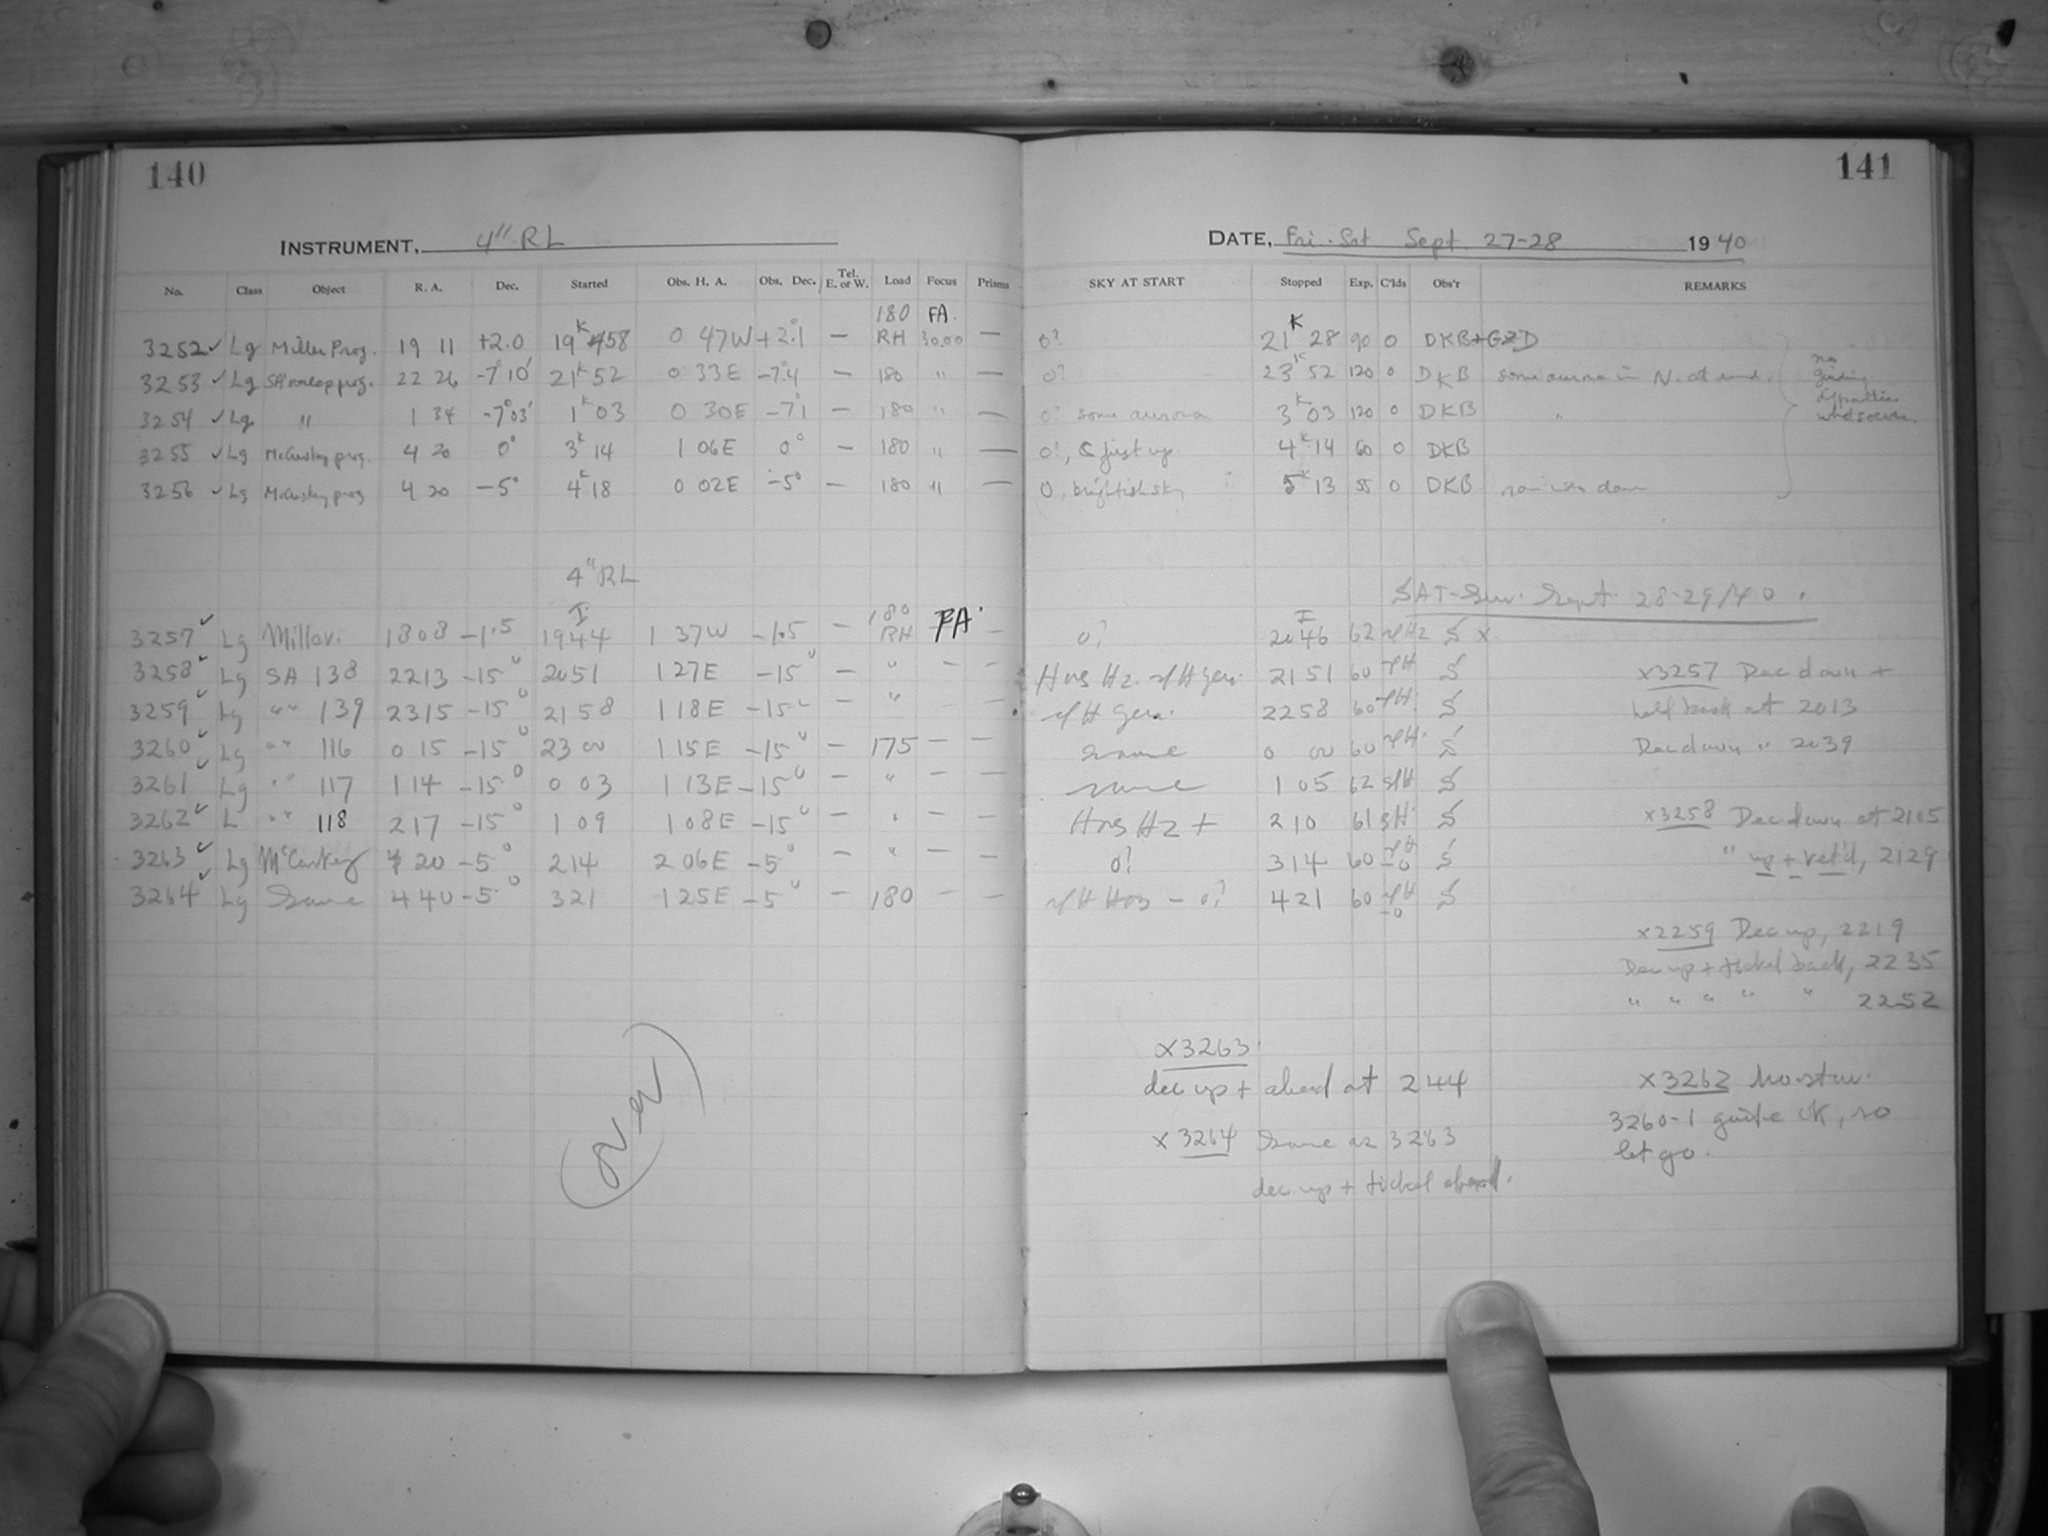 140
141
INSTRUMENT, 4" RL
DATE, Fri-Sat Sept 27-28 1940
No. Class Object R. A. Dec. Started Obs. H. A. Obs. Dec. Tel. E. or W. Load Focus Prisms SKY AT START Stopped Exp. C'lds Obs'r REMARKS
180 FA.
3252 ✓ Lg Miller Prog. 19 11 +2.0 19 K 58 0 47W +2.1 — RH 30.00 — 0? 21 K 28 90 0 DKB+
3253 ✓ Lg SA prog. 22 26 -7°10' 21 K 52 0 33E -7.4 — 180 " — 0? 23 K 52 120 0 DKB some aurora in N. at end. no
3254 ✓ Lg " 1 34 -7°03' 1 K 03 0 30E -7.1 — 180 " — 0? some aurora 3 K 03 120 0 DKB "
3255 ✓ Lg McCuskey prog. 4 20 0° 3 K 14 1 06E 0° — 180 " — 0?, just up. 4 K 14 60 0 DKB
3256 ✓ Lg McCuskey prog 4 20 -5° 4 K 18 0 02E -5° — 180 " — 0, brightish sky 5 K 13 55 0 DKB
4" RL
SAT-Sun. Sept. 28-29/40.
180
3257 ✓ Lg Miller. 1808 -1.5 1944 1 37W -1.5 — RH FA. — 0? 2046 62 S x
3258 ✓ Lg SA 138 2213 -15° 2051 1 27E -15° — " — — Hns Hz. 2151 60 S x3257 Dec down +
3259 ✓ Lg " " 139 2315 -15° 2158 1 18E -15° — " — — 2258 60 S held back at 2013
3260 ✓ Lg " " 116 0 15 -15° 23 00 1 15E -15° — 175 — — same 0 00 60 S Dec down " 2039
3261 ✓ Lg " " 117 1 14 -15° 0 03 1 13E -15° — " — — same 1 05 62 S
3262 ✓ L " " 118 2 17 -15° 1 09 1 08E -15° — " — — Hns Hz + 2 10 61 S x3258 Dec down at 2105
3263 ✓ Lg McCuskey 4 20 -5° 2 14 2 06E -5° — " — — 0? 3 14 60 S " up + ret'd, 2129
3264 ✓ Lg Same 4 40 -5° 3 21 1 25E -5° — 180 — — 4 21 60 S
x2259 Dec up, 2219
Dec up + tickel back, 2235
" " " " " 2252
(over)
x3263
dec up + ahead at 244
x3264 Same as 3263
dec. up + tickel ahead.
x3262
3260-1 quite ok, so
let go.